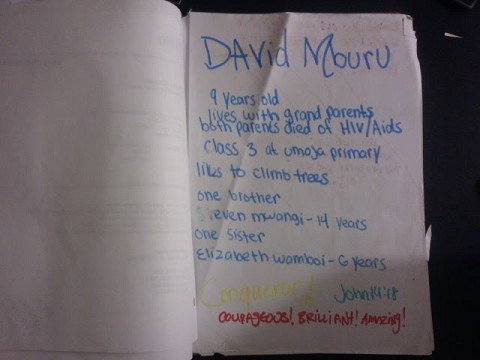 DAVid Mburu
9 years old
lives with grand parents
both parents died of HIV/Aids
Class 3 at umoja primary
likes to climb trees
one brother
Steven mwangi - 14 years
one sister
Elizabeth wamboi - 6 years
Conqueror!
John 14:18
COURAGEOUS! BRILLIANT! AMAZING!